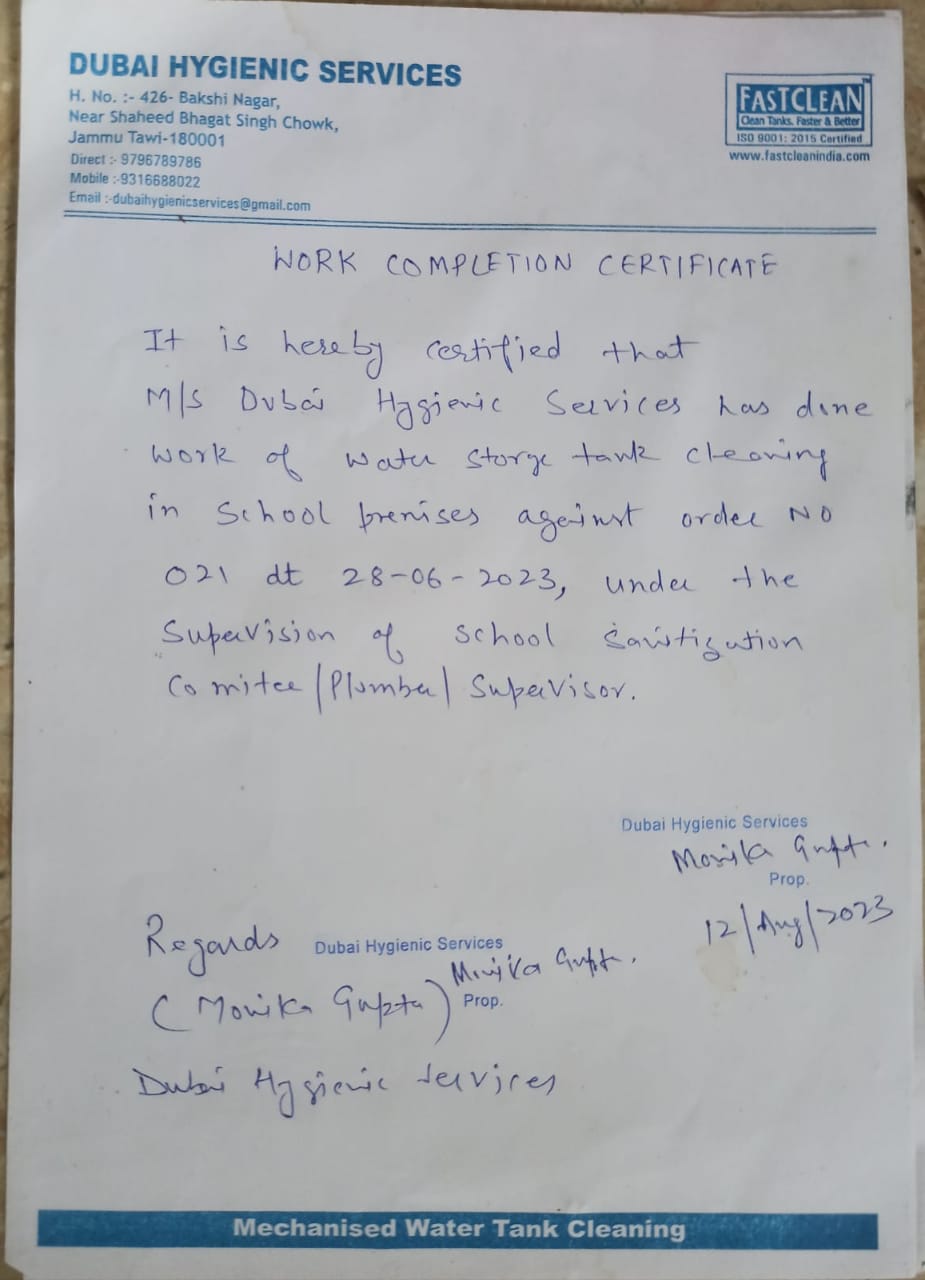 DUBAI HYGIENIC SERVICES
H. No. :- 426- Bakshi Nagar,
Near Shaheed Bhagat Singh Chowk,
Jammu Tawi-180001
Direct :- 9796789786
Mobile :-9316688022
Email :-dubaihygienicservices@gmail.com
FASTCLEAN™
Clean Tanks. Faster & Better
ISO 9001: 2015 Certified
www.fastcleanindia.com
WORK COMPLETION CERTIFICATE
It is hereby certified that
M/S Dubai Hygienic Services has done
work of water storge tank cleaning
in School premises against order NO
021 dt 28-06-2023, under the
Supervision of School Sanitization
Comitee/Plumber/Supervisor.
Dubai Hygienic Services
Monika Gupta.
Prop.
12/Aug/2023
Regards
Dubai Hygienic Services
Monika Gupta.
(Monika Gupta)
Prop.
Dubai Hygienic Services
Mechanised Water Tank Cleaning